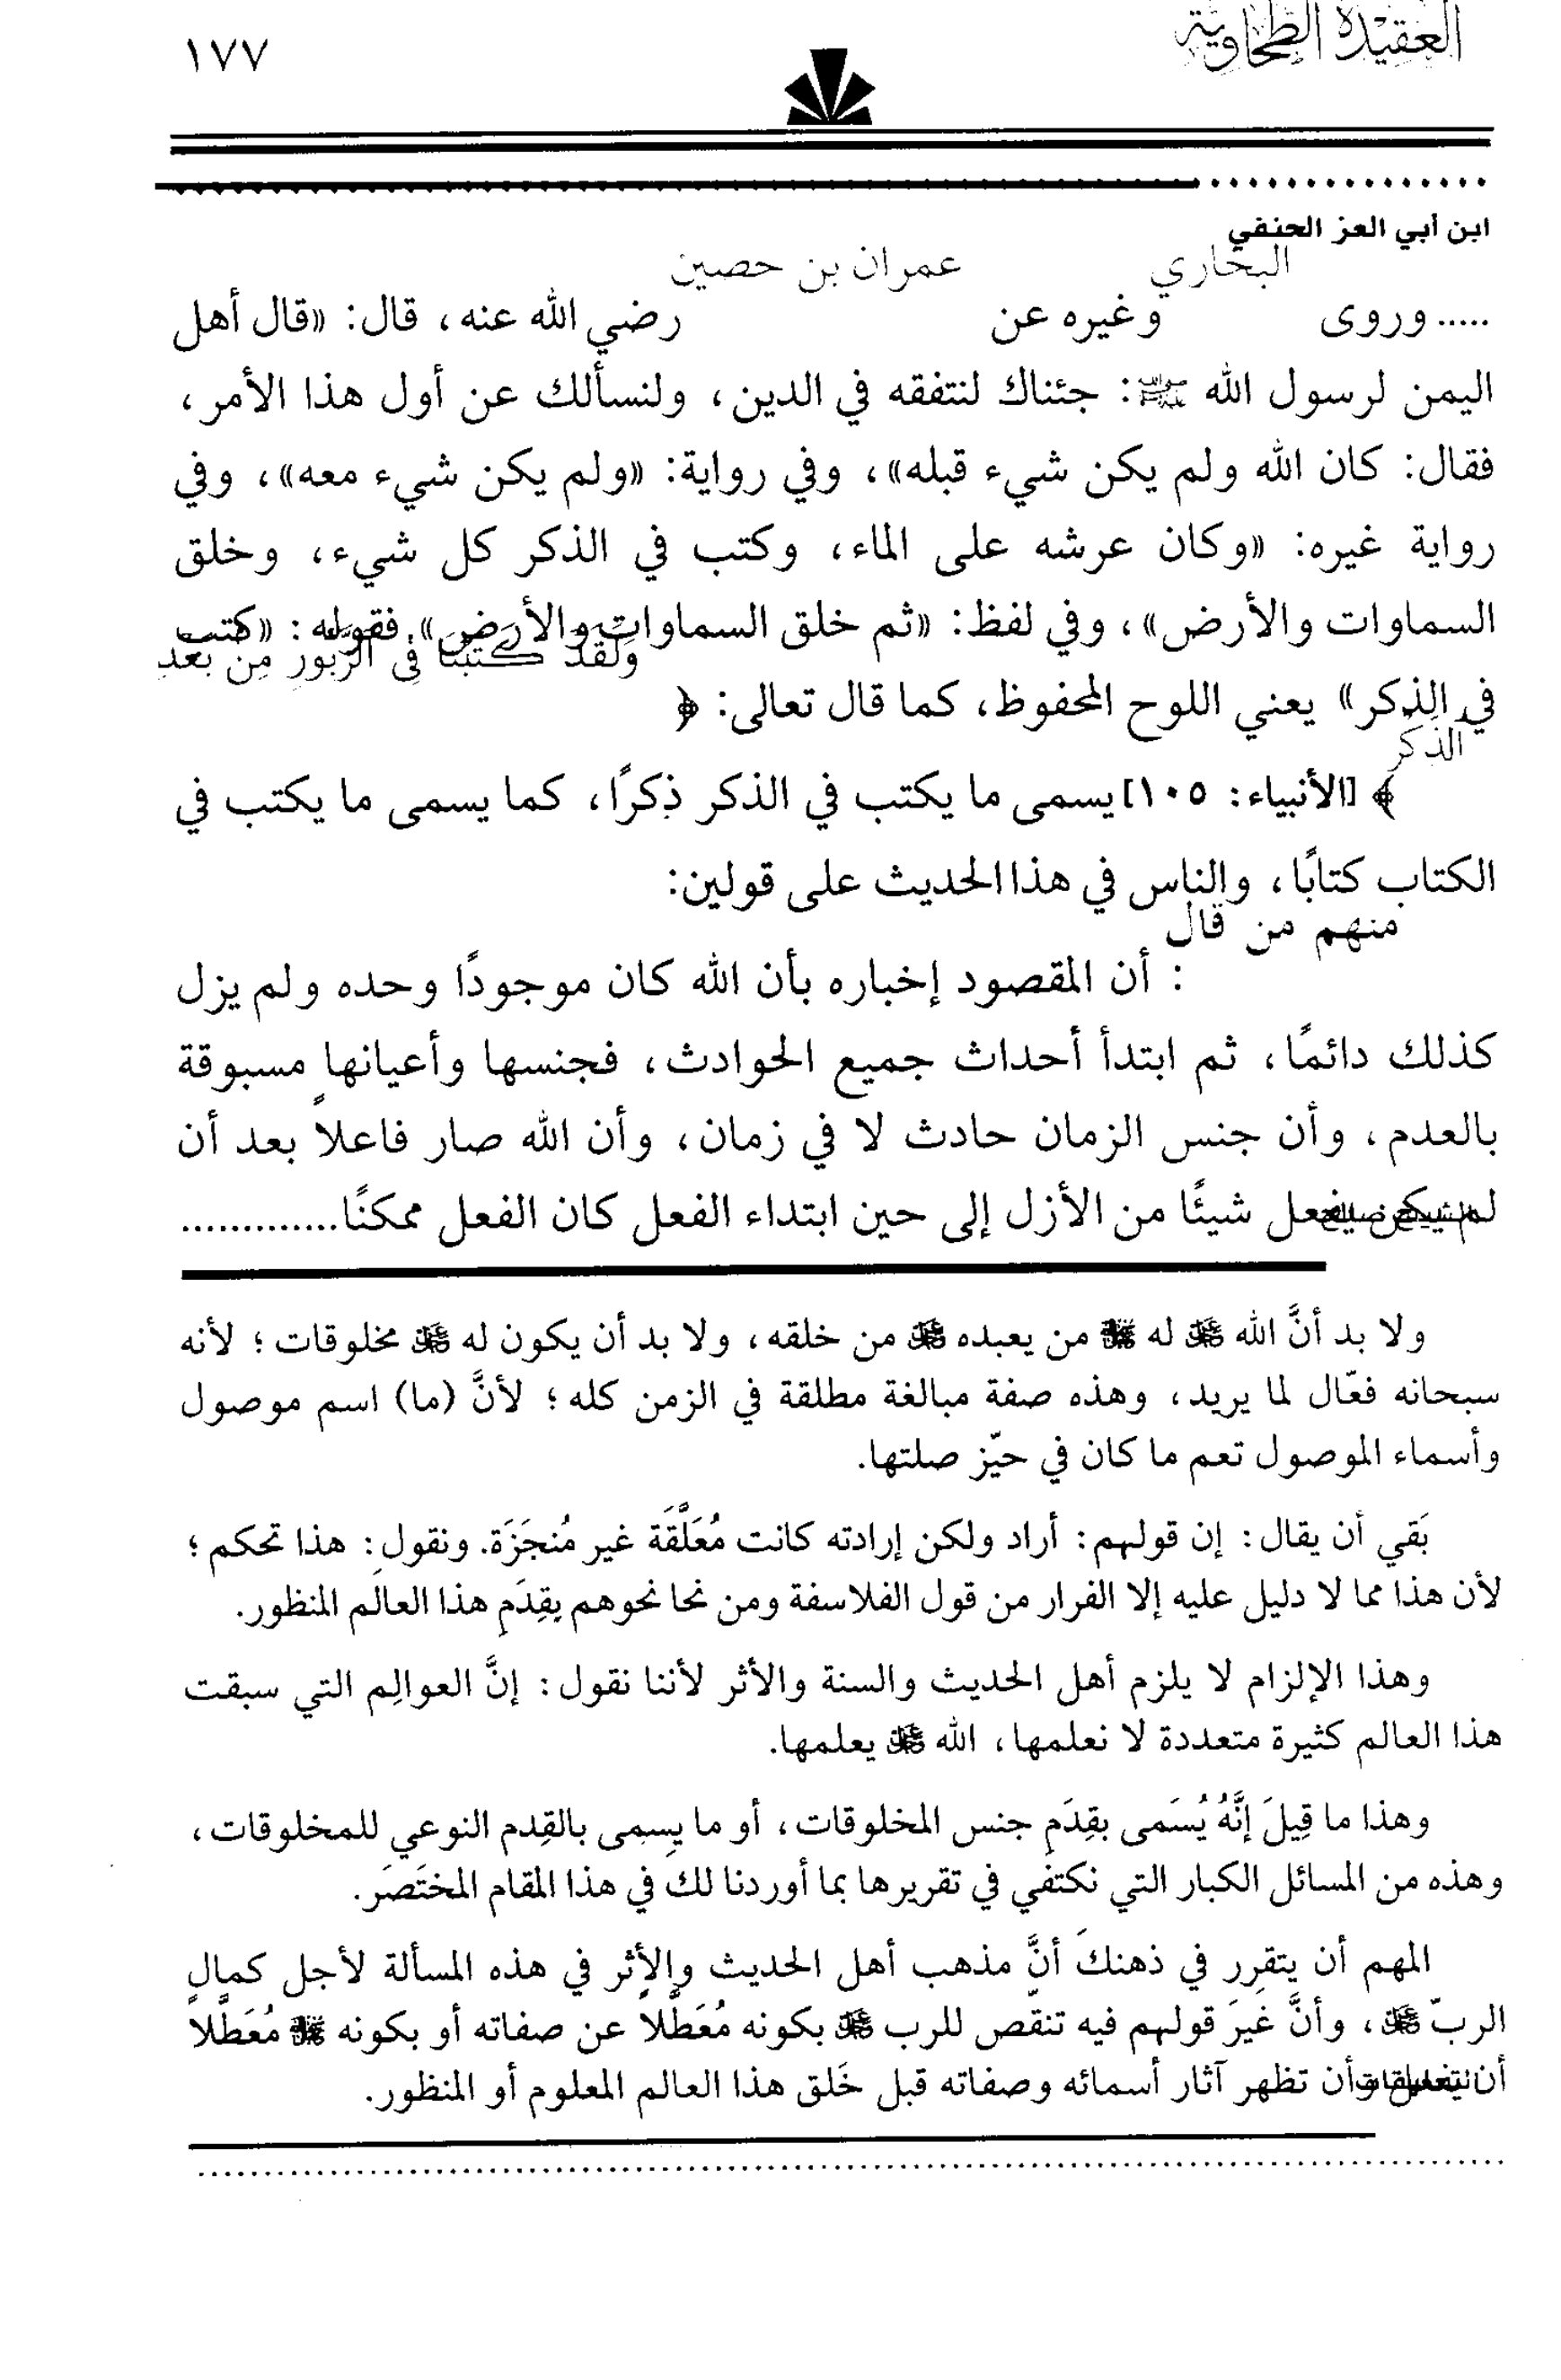 العقيدة الطحاوية
١٧٧
ابن أبي العز الحنفي
..... وروى البخاري وغيره عن عمران بن حصين رضي الله عنه، قال: «قال أهل
اليمن لرسول الله ﷺ: جئناك لنتفقه في الدين، ولنسألك عن أول هذا الأمر،
فقال: كان الله ولم يكن شيء قبله»، وفي رواية: «ولم يكن شيء معه»، وفي
رواية غيره: «وكان عرشه على الماء، وكتب في الذكر كل شيء، وخلق
السماوات والأرض»، وفي لفظ: «ثم خلق السماوات والأرض»، فقوله: «كتب
في الذكر» يعني اللوح المحفوظ، كما قال تعالى: ﴿وَلَقَدْ كَتَبْنَا فِي الزَّبُورِ مِنْ بَعْدِ
الذِّكْرِ﴾ [الأنبياء: ١٠٥] يسمى ما يكتب في الذكر ذِكرًا، كما يسمى ما يكتب في
الكتاب كتابًا، والناس في هذا الحديث على قولين:
منهم من قال: أن المقصود إخباره بأن الله كان موجودًا وحده ولم يزل
كذلك دائمًا، ثم ابتدأ أحداث جميع الحوادث، فجنسها وأعيانها مسبوقة
بالعدم، وأن جنس الزمان حادث لا في زمان، وأن الله صار فاعلاً بعد أن
لم يكن يفعل شيئًا من الأزل إلى حين ابتداء الفعل كان الفعل ممكنًا..............
الشيخ صالح
ولا بد أنَّ الله ﷻ له ﷻ من يعبده ﷻ من خلقه، ولا بد أن يكون له ﷻ مخلوقات؛ لأنه
سبحانه فعّال لما يريد، وهذه صفة مبالغة مطلقة في الزمن كله؛ لأنَّ (ما) اسم موصول
وأسماء الموصول تعم ما كان في حيّز صلتها.
بَقي أن يقال: إن قولهم: أراد ولكن إرادته كانت مُعَلَّقَة غير مُنجَزَة. ونقول: هذا تحكم؛
لأن هذا مما لا دليل عليه إلا الفرار من قول الفلاسفة ومن نحا نحوهم بِقِدَمِ هذا العالَم المنظور.
وهذا الإلزام لا يلزم أهل الحديث والسنة والأثر لأننا نقول: إنَّ العوالِم التي سبقت
هذا العالم كثيرة متعددة لا نعلمها، الله ﷻ يعلمها.
وهذا ما قِيلَ إنَّهُ يُسَمى بقِدَمِ جنس المخلوقات، أو ما يسمى بالقِدم النوعي للمخلوقات،
وهذه من المسائل الكبار التي نكتفي في تقريرها بما أوردنا لك في هذا المقام المختَصَر.
المهم أن يتقرر في ذهنكَ أنَّ مذهب أهل الحديث والأثر في هذه المسألة لأجل كمال
الربّ ﷻ، وأنَّ غيرَ قولهم فيه تنقّص للرب ﷻ بكونه مُعَطَّلاً عن صفاته أو بكونه ﷻ مُعَطَّلاً
أن يفعل وأن تظهر آثار أسمائه وصفاته قبل خَلق هذا العالم المعلوم أو المنظور.